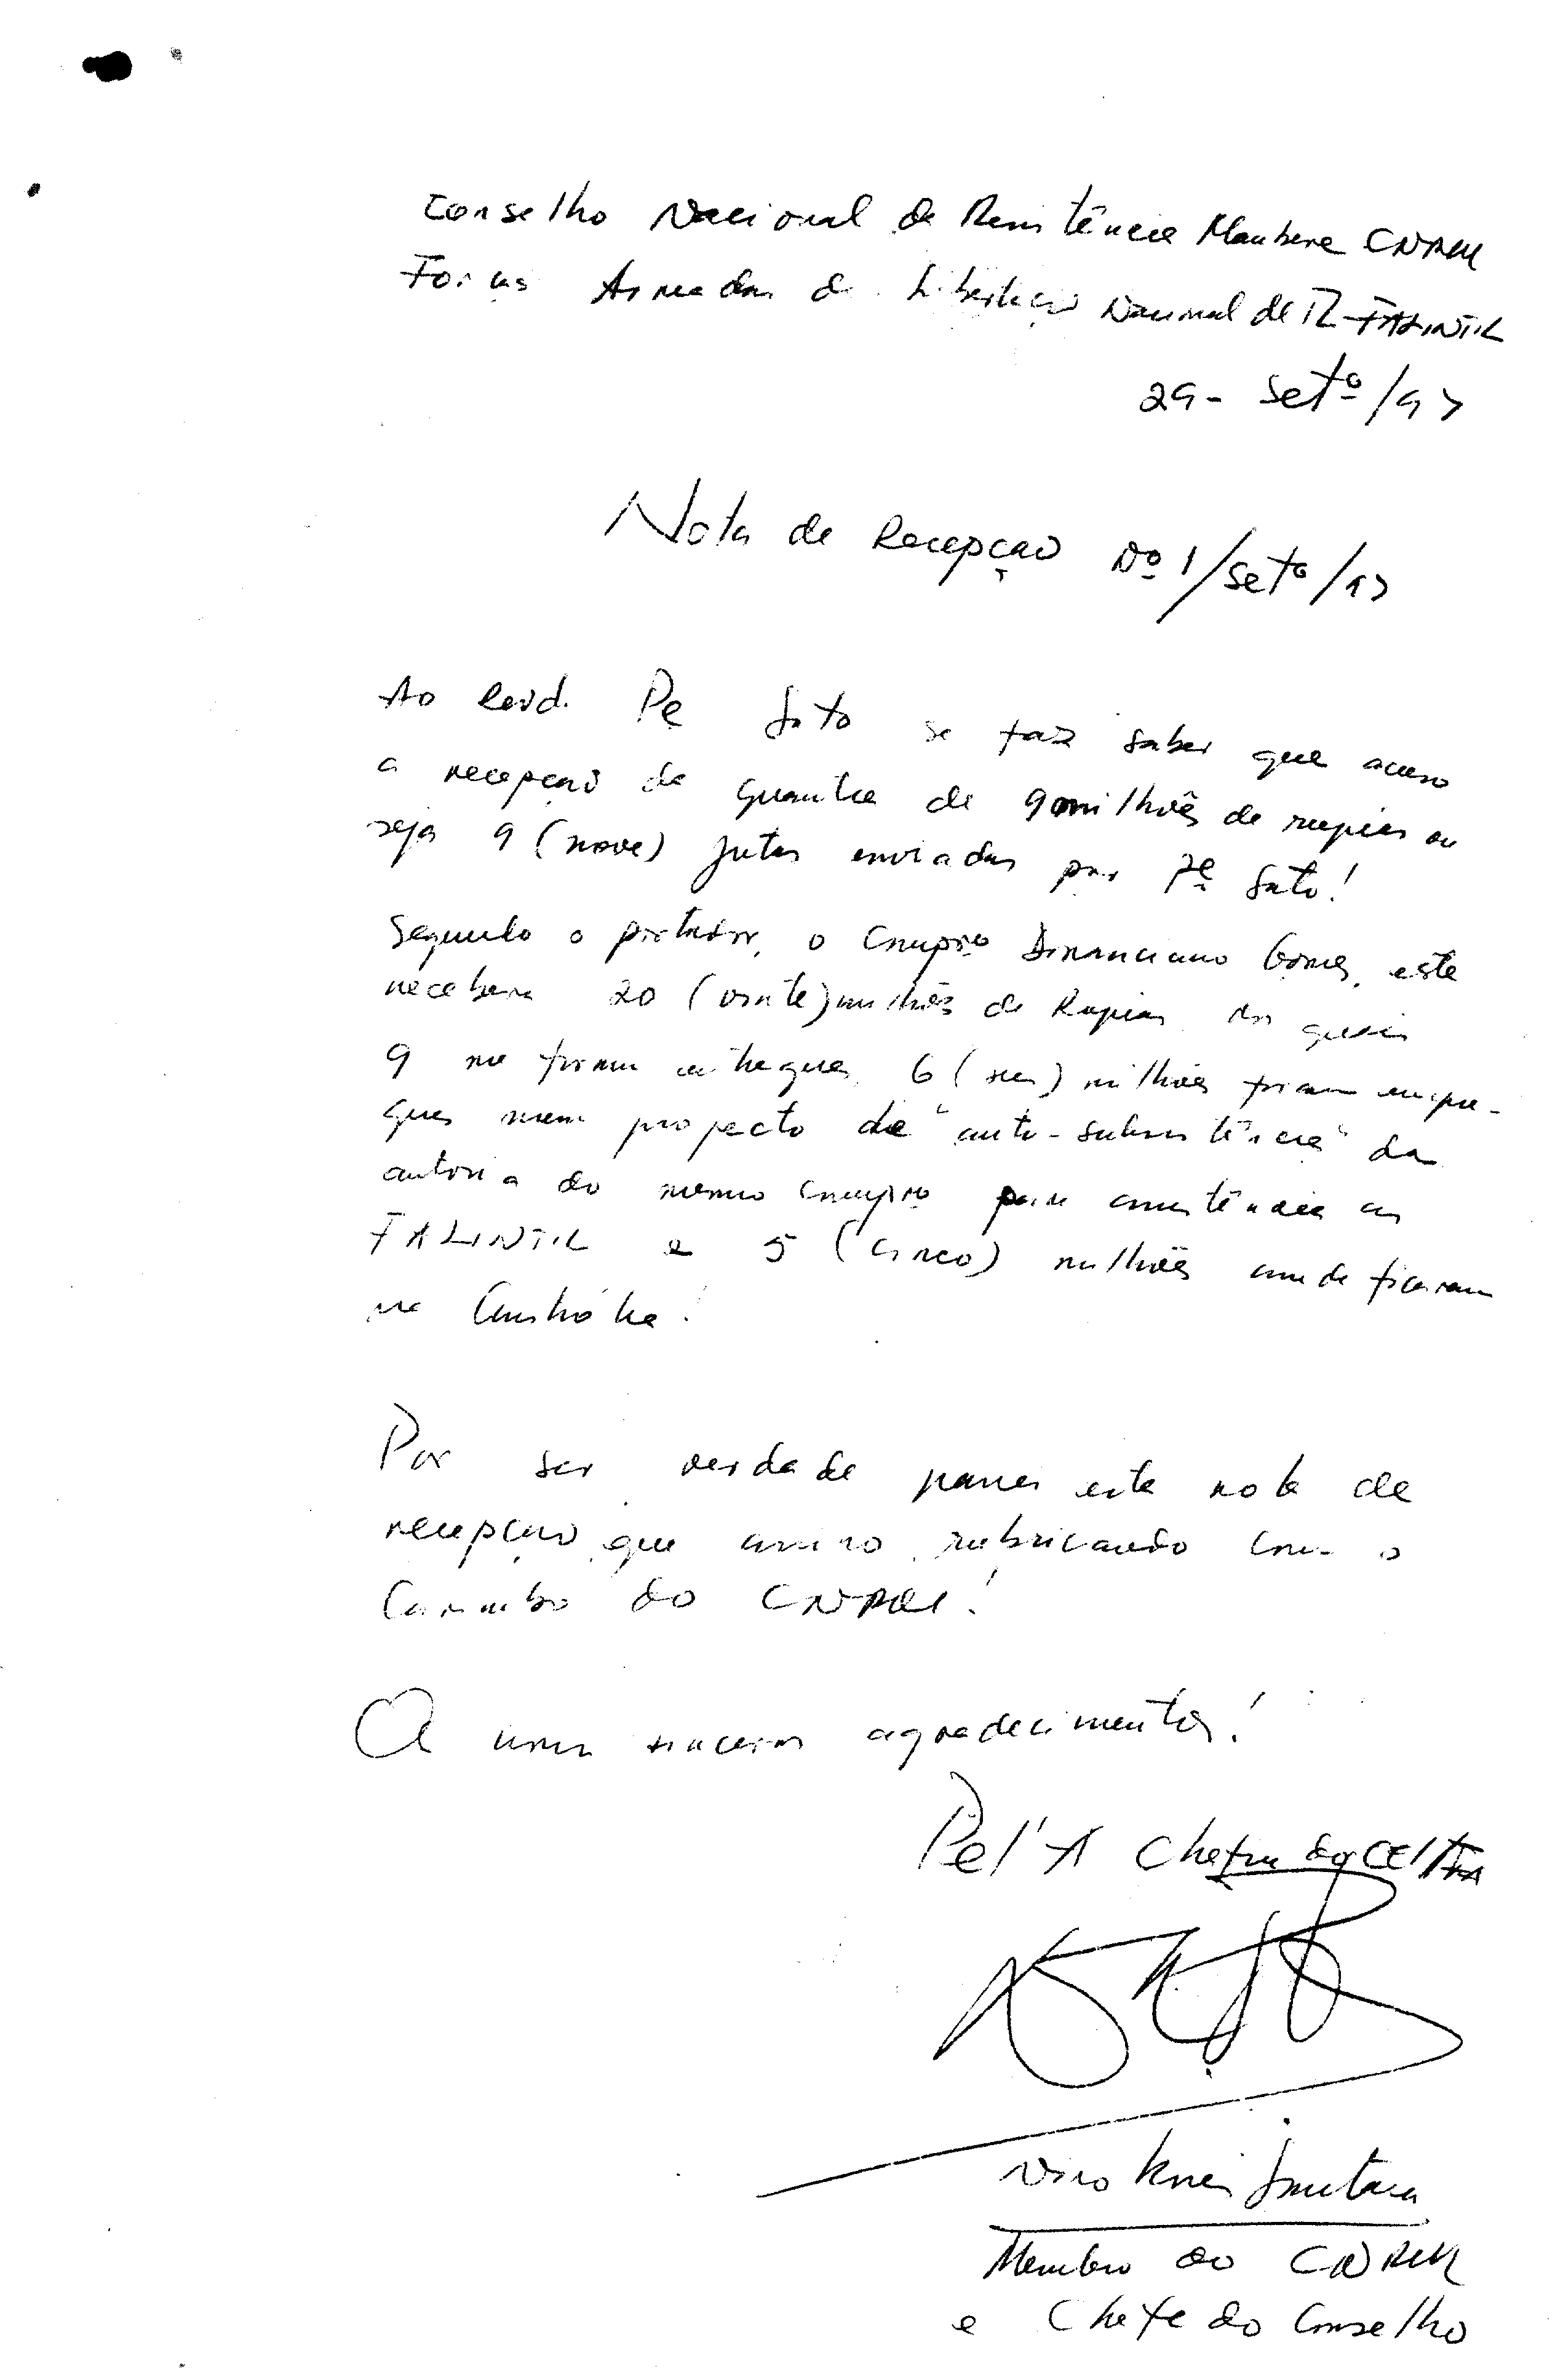 Conselho Nacional de Resistência Maubere CNRM
Forças Armadas de Libertação Nacional de TL-FALINTIL
29- Setº/97
Nota de Recepção Nº 1/Setº/97
Ao Revd. Pe Sato se faz saber que acuso
a recepção da quantia de 9 milhões de rupias ou
seja 9 (nove) jutas enviadas por Pe Sato!
Segundo o portador, o Compº Domanciano Gomes, este
recebera 20 (vinte) milhões de Rupias das quais
9 me foram entregues, 6 (seis) milhões foram empre-
gues num projecto de "auto-subsistência" da
autoria do mesmo Compº para assistência as
FALINTIL e 5 (cinco) milhões ainda ficaram
na Custódia!
Por ser verdade passei esta nota de
recepção que assino rubricando com o
Carimbo do CNRM!
Os meus sinceros agradecimentos!
Pel'A Chefia do
Membro do CNRM
e Chefe do Conselho